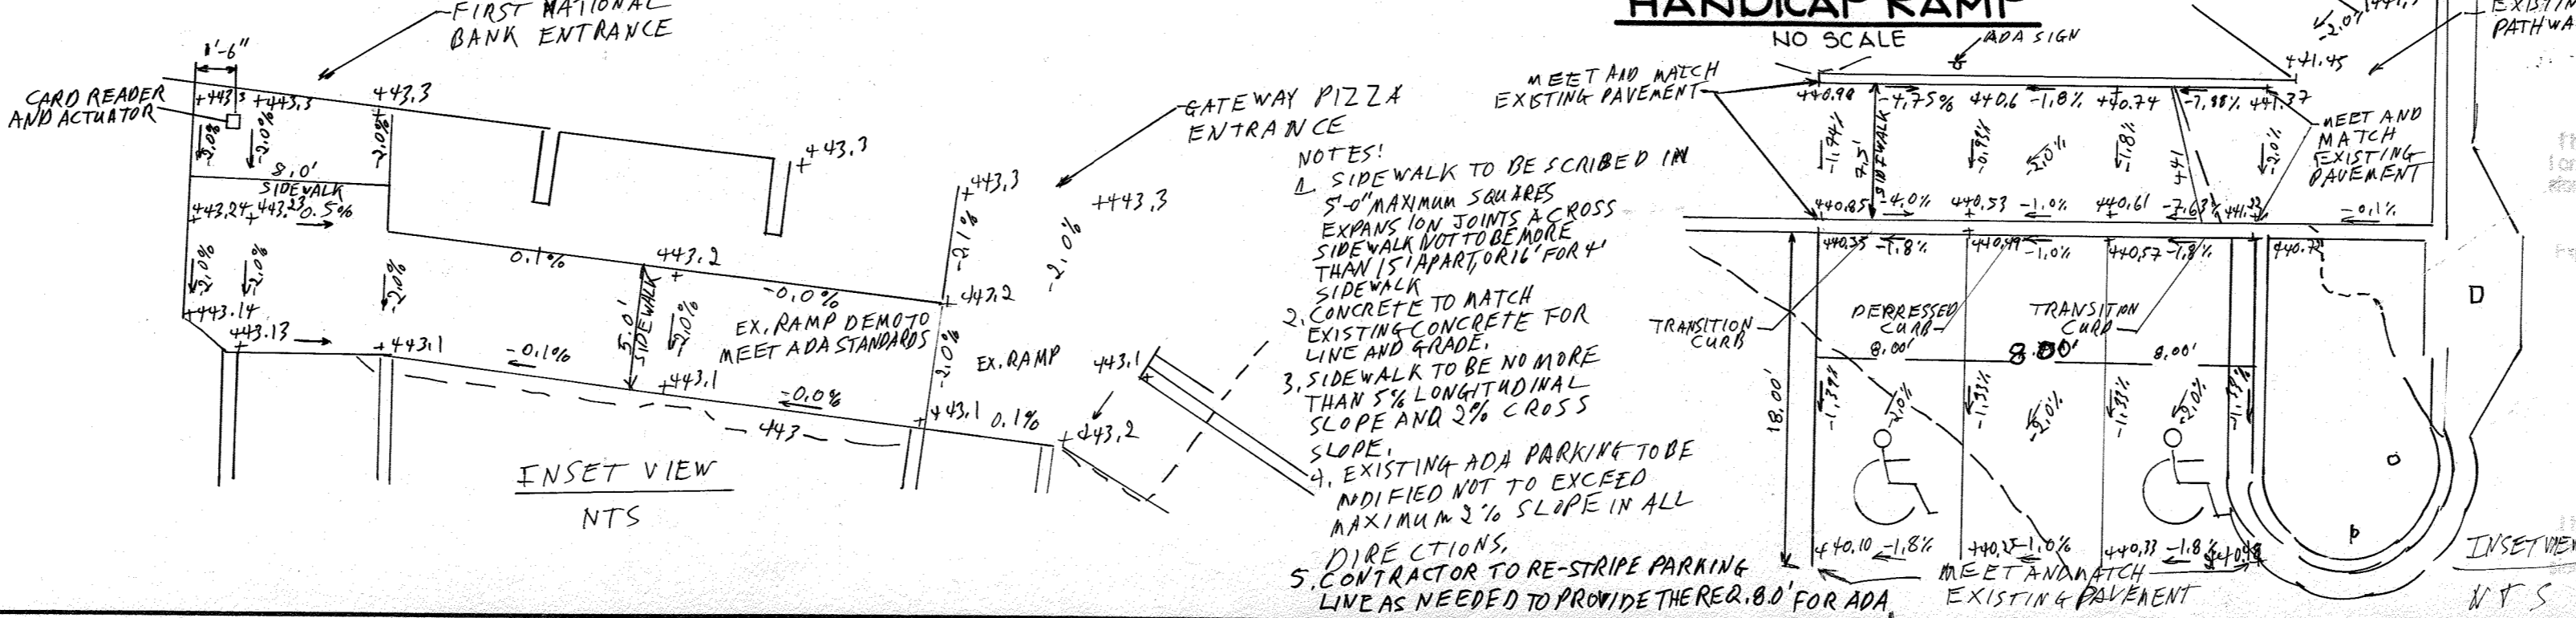 FIRST NATIONAL
BANK ENTRANCE
1'-6"
CARD READER
AND ACTUATOR
+443.3
+443.3
-2.0%
-2.0%
-2.0%
8.0'
SIDEWALK
+443.24
+443.23
0.5%
-2.0%
-2.0%
-2.0%
+443.14
+443.13
+443.1
-0.1%
0.1%
5.0'
SIDEWALK
443.2
-2.0%
-0.0%
EX. RAMP DEMO TO
MEET ADA STANDARDS
+443.1
-0.0%
443
+443.3
GATEWAY PIZZA
ENTRANCE
+443.3
-2.1%
+443.3
-2.0%
+443.2
-2.0%
EX. RAMP
443.1
+443.1
0.1%
+443.2
INSET VIEW
NTS
NOTES:
1. SIDEWALK TO BE SCRIBED IN
5'-0" MAXIMUM SQUARES
EXPANSION JOINTS ACROSS
SIDEWALK NOT TO BE MORE
THAN 15' APART, OR 16' FOR 4'
SIDEWALK
2. CONCRETE TO MATCH
EXISTING CONCRETE FOR
LINE AND GRADE.
3. SIDEWALK TO BE NO MORE
THAN 5% LONGITUDINAL
SLOPE AND 2% CROSS
SLOPE.
4. EXISTING ADA PARKING TO BE
MODIFIED NOT TO EXCEED
MAXIMUM 2% SLOPE IN ALL
DIRECTIONS.
5. CONTRACTOR TO RE-STRIPE PARKING
LINE AS NEEDED TO PROVIDE THE REQ. 8.0' FOR ADA.
HANDICAP RAMP
NO SCALE
ADA SIGN
MEET AND MATCH
EXISTING PAVEMENT
-2.0%
PATHWA
441.45
440.98
-4.75%
440.6
-1.8%
440.74
-7.88%
441.37
-1.74%
7.5'
SIDEWALK
-2.0%
-1.8%
441
-2.0%
MEET AND
MATCH
EXISTING
PAVEMENT
440.85
-4.0%
440.53
-1.0%
440.61
-7.63%
-0.1%
440.35
-1.8%
440.49
-1.0%
440.57
-1.8%
TRANSITION
CURB
DEPRESSED
CURB
TRANSITION
CURB
8.00'
8.00'
8.00'
18.00'
-1.39%
-2.0%
-1.33%
-2.0%
-1.33%
-2.0%
D
440.10
-1.8%
440.25
-1.0%
440.33
-1.8%
MEET AND MATCH
EXISTING PAVEMENT
INSET VIEW
NTS